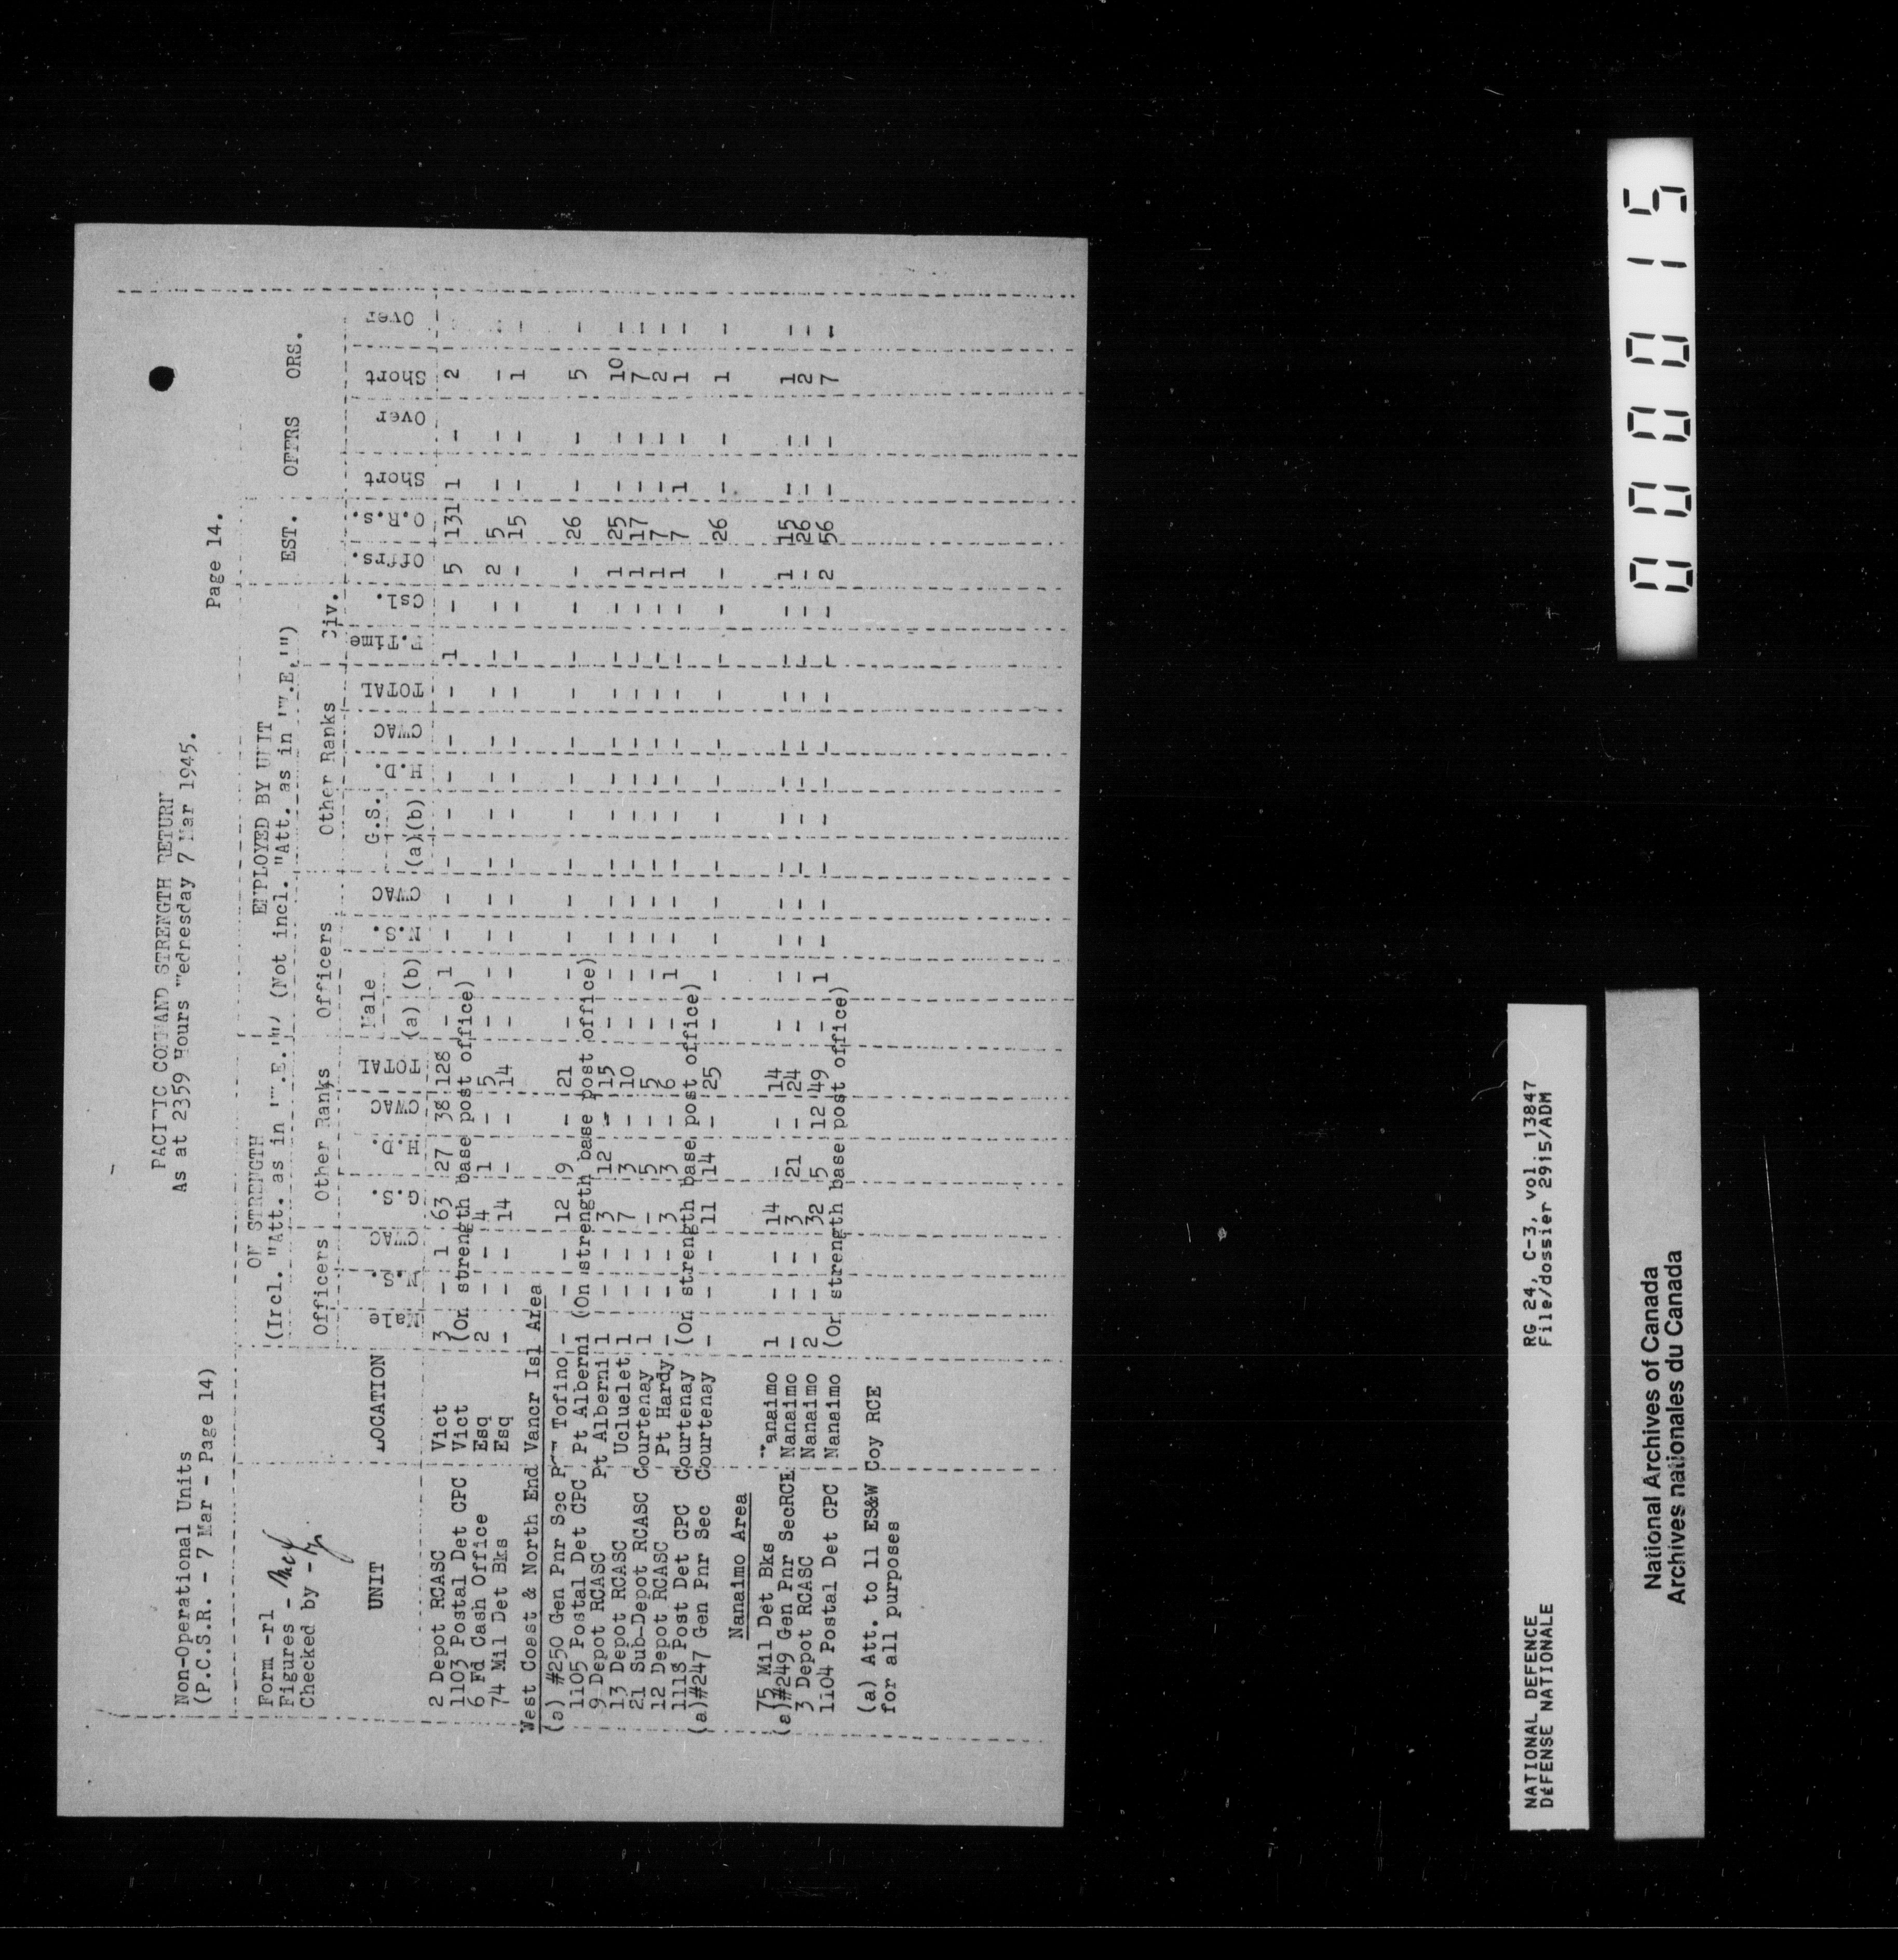 PACIFIC COMMAND STRENGTH RETURN
As at 2359 Hours Wednesday 7 Mar 1945.
Page 14.
Non-Operational Units
(P.C.S.R. - 7 Mar - Page 14)
Form -rl
Figures -
Checked by -
ON STRENGTH
(Incl. "Att. as in W.E.")
EMPLOYED BY UNIT
(Not incl. "Att. as in W.E.")
EST. OFFRS ORS.
Officers Other Ranks Officers Other Ranks Civ.
UNIT LOCATION Male N.S. CWAC G.S. H.D. CWAC TOTAL Male (a) (b) N.S. CWAC G.S. (a) (b) H.D. CWAC TOTAL F.Time Csl. Offrs. O.R.s. Short Over Short Over
2 Depot RCASC Vict 3 - 1 63 27 38 128 - 1 - - - - - - - 1 - 5 131 1 - 2 -
1103 Postal Det CPC Vict (On strength base post office)
6 Fd Cash Office Esq 2 - - 4 1 - 5 - - - - - - - - - - - 2 5 - - - -
74 Mil Det Bks Esq - - - 14 - - 14 - - - - - - - - - - - - 15 - - 1 -
West Coast & North End Vancr Isl Area
(a) #250 Gen Pnr Sec Tofino - - - 12 9 - 21 - - - - - - - - - - - - 26 - - 5 -
1105 Postal Det CPC Pt Alberni (On strength base post office)
9 Depot RCASC Pt Alberni 1 - - 3 12 - 15 - - - - - - - - - - - 1 25 - - 10 -
13 Depot RCASC Ucluelet 1 - - 7 3 - 10 - - - - - - - - - - - 1 17 - - 7 -
21 Sub-Depot RCASC Courtenay 1 - - - 5 - 5 - - - - - - - - - - - 1 7 - - 2 -
12 Depot RCASC Pt Hardy - - - 3 3 - 6 - 1 - - - - - - - - - 1 7 1 - 1 -
1118 Post Det CPC Courtenay (On strength base post office)
(a)#247 Gen Pnr Sec Courtenay - - - 11 14 - 25 - - - - - - - - - - - - 26 - - 1 -
Nanaimo Area
75 Mil Det Bks Nanaimo 1 - - 14 - - 14 - - - - - - - - - - - 1 15 - - 1 -
(a)#249 Gen Pnr SecRCE Nanaimo - - - 3 21 - 24 - - - - - - - - - - - - 26 - - 2 -
3 Depot RCASC Nanaimo 2 - - 32 5 12 49 - 1 - - - - - - - - - 2 56 - - 7 -
1104 Postal Det CPC Nanaimo (On strength base post office)
(a) Att. to 11 ES&W Coy RCE
for all purposes
NATIONAL DEFENCE RG 24, C-3, vol. 13847
DÉFENSE NATIONALE File/dossier 2915/ADM
National Archives of Canada
Archives nationales du Canada
000015